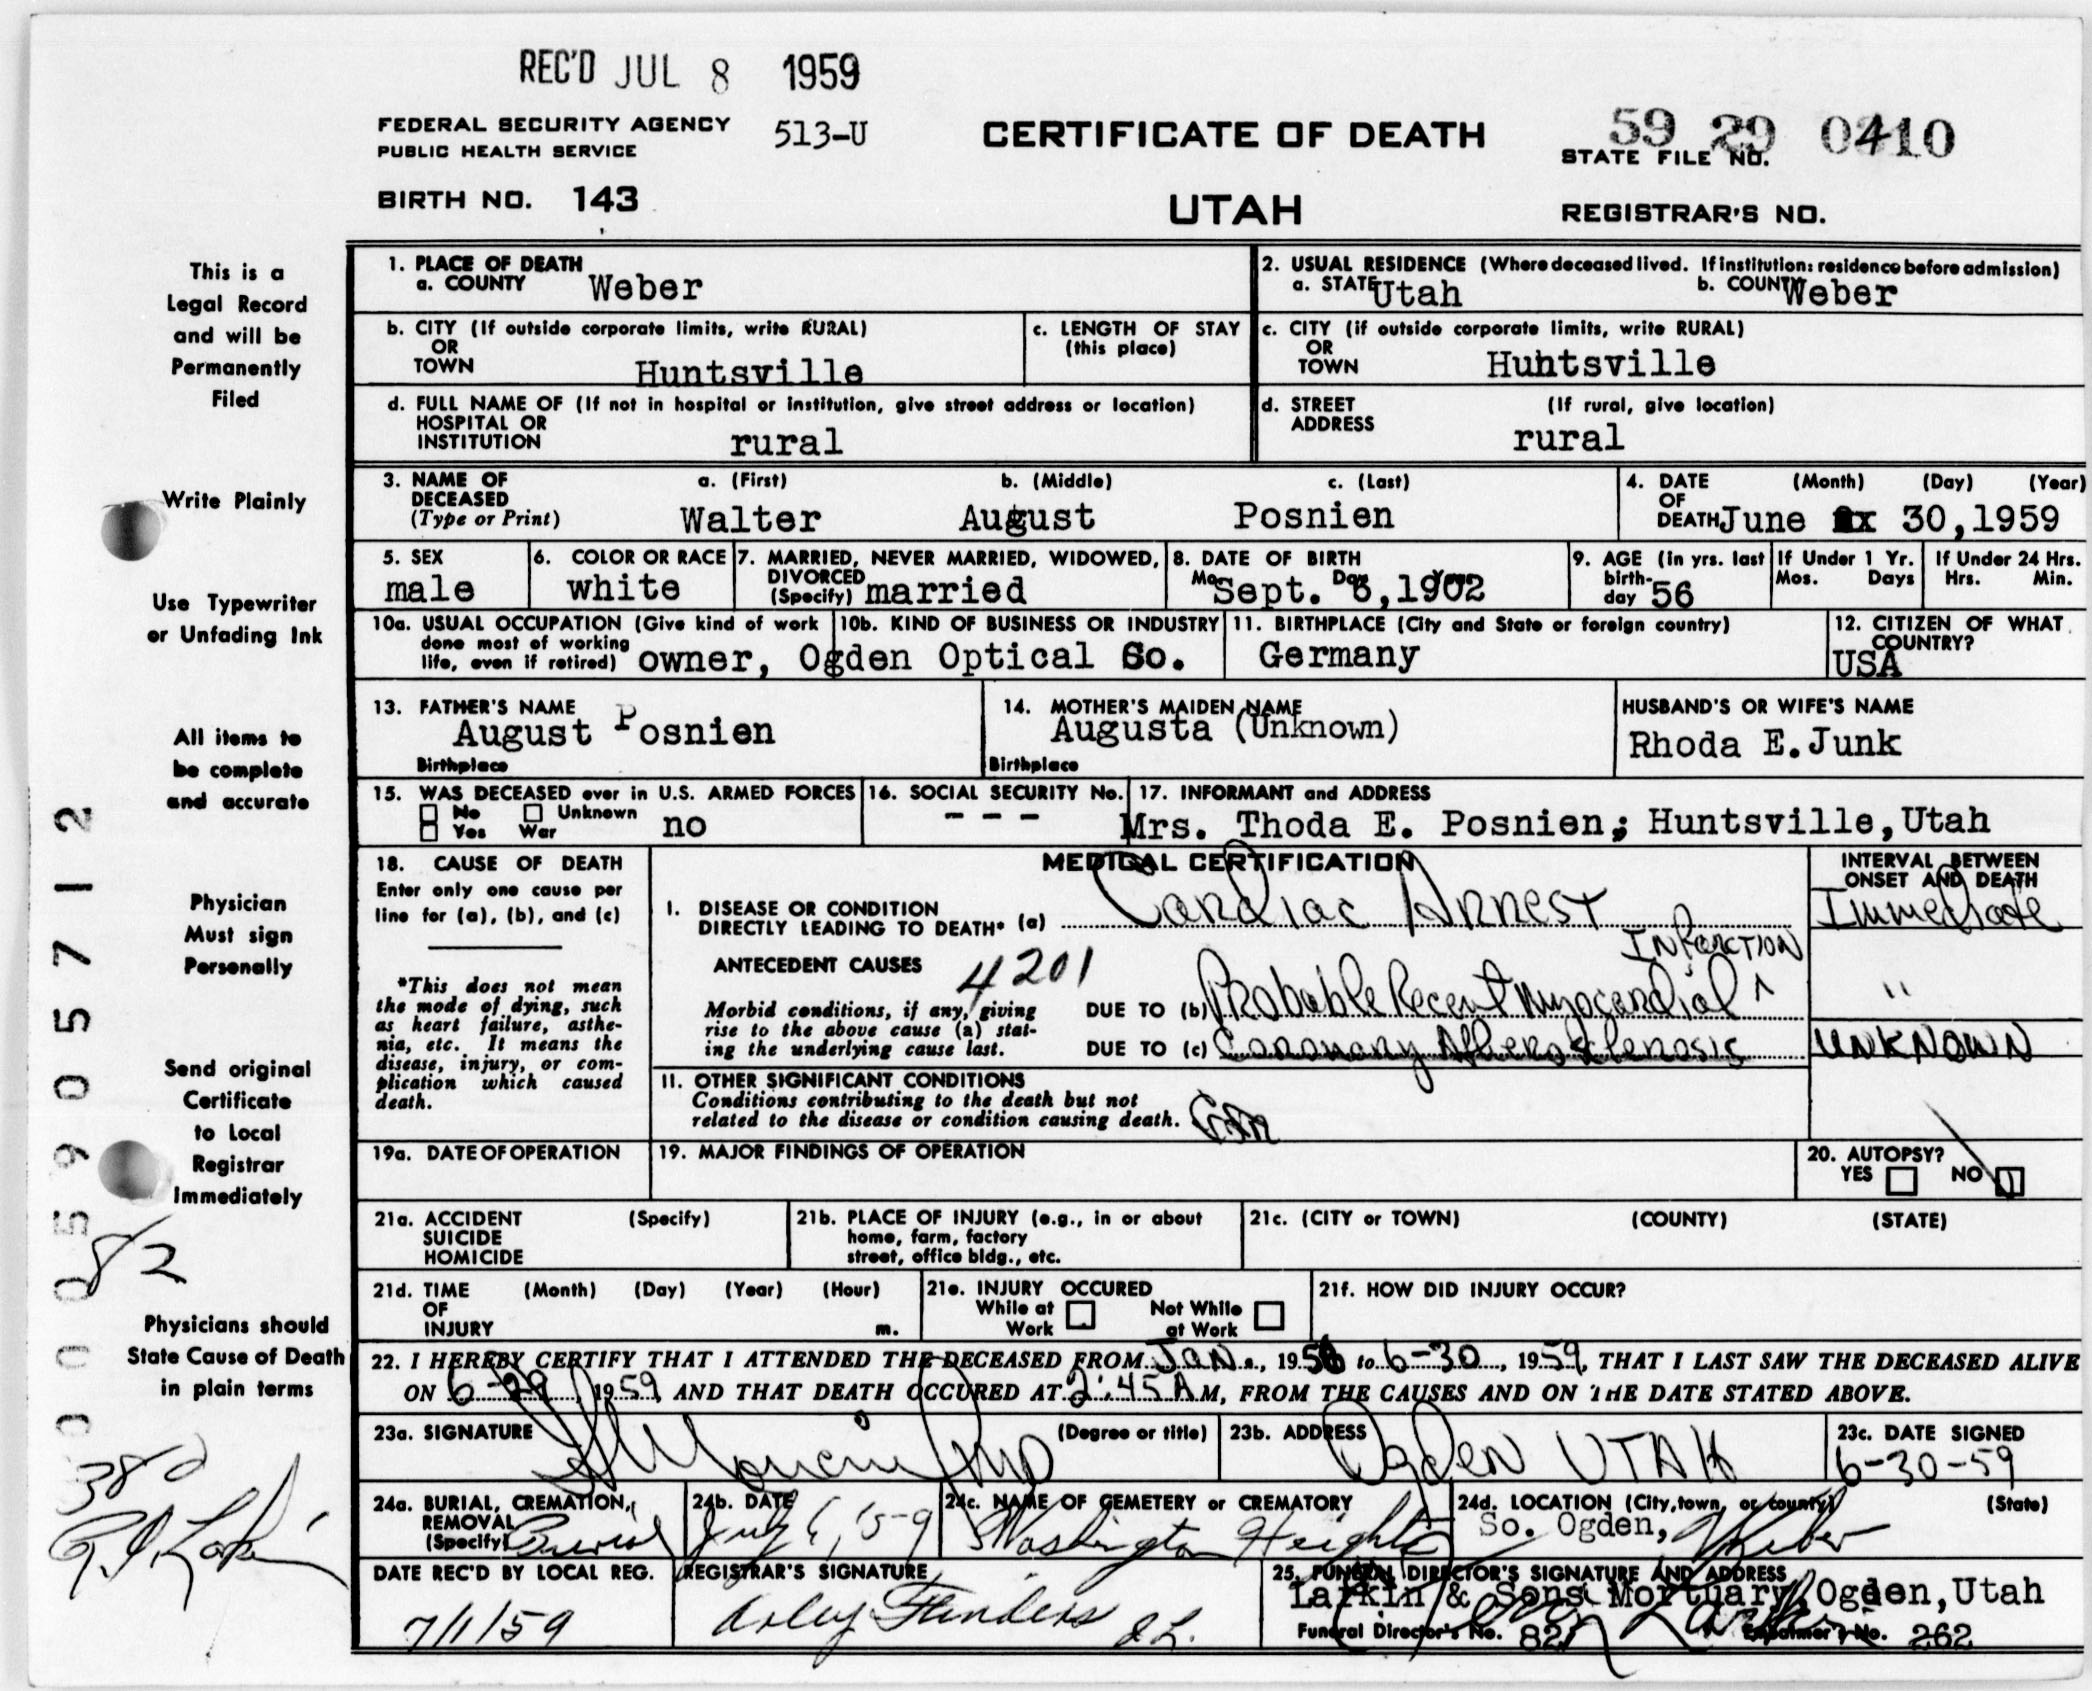 REC'D JUL 8 1959
FEDERAL SECURITY AGENCY
PUBLIC HEALTH SERVICE
513-U
CERTIFICATE OF DEATH
59 29 0410
STATE FILE NO.
BIRTH NO. 143
UTAH
REGISTRAR'S NO.
This is a
Legal Record
and will be
Permanently
Filed
Write Plainly
Use Typewriter
or Unfading Ink
All items to
be complete
and accurate
Physician
Must sign
Personally
Send original
Certificate
to Local
Registrar
Immediately
82
Physicians should
State Cause of Death
in plain terms
1. PLACE OF DEATH
a. COUNTY Weber
2. USUAL RESIDENCE (Where deceased lived. If institution: residence before admission)
a. STATE Utah b. COUNTY Weber
b. CITY (If outside corporate limits, write RURAL)
OR
TOWN Huntsville
c. LENGTH OF STAY
(this place)
c. CITY (if outside corporate limits, write RURAL)
OR
TOWN Huhtsville
d. FULL NAME OF (If not in hospital or institution, give street address or location)
HOSPITAL OR
INSTITUTION rural
d. STREET (If rural, give location)
ADDRESS rural
3. NAME OF a. (First) b. (Middle) c. (Last)
DECEASED
(Type or Print) Walter August Posnien
4. DATE (Month) (Day) (Year)
OF
DEATH June 30,1959
5. SEX
male
6. COLOR OR RACE
white
7. MARRIED, NEVER MARRIED, WIDOWED,
DIVORCED
(Specify) married
8. DATE OF BIRTH
Mo. Day Year
Sept. 6,1902
9. AGE (in yrs. last
birth-
day 56
If Under 1 Yr.
Mos. Days
If Under 24 Hrs.
Hrs. Min.
10a. USUAL OCCUPATION (Give kind of work
done most of working
life, even if retired)
10b. KIND OF BUSINESS OR INDUSTRY
owner, Ogden Optical Co.
11. BIRTHPLACE (City and State or foreign country)
Germany
12. CITIZEN OF WHAT
COUNTRY?
USA
13. FATHER'S NAME
August Posnien
Birthplace
14. MOTHER'S MAIDEN NAME
Augusta (Unknown)
Birthplace
HUSBAND'S OR WIFE'S NAME
Rhoda E. Junk
15. WAS DECEASED ever in U.S. ARMED FORCES
No Unknown
Yes War no
16. SOCIAL SECURITY No.
- - -
17. INFORMANT and ADDRESS
Mrs. Thoda E. Posnien; Huntsville,Utah
18. CAUSE OF DEATH
Enter only one cause per
line for (a), (b), and (c)
*This does not mean
the mode of dying, such
as heart failure, asthe-
nia, etc. It means the
disease, injury, or com-
plication which caused
death.
MEDICAL CERTIFICATION
INTERVAL BETWEEN
ONSET AND DEATH
I. DISEASE OR CONDITION
DIRECTLY LEADING TO DEATH* (a) Cardiac Arrest Immediate
ANTECEDENT CAUSES 4201
Morbid conditions, if any, giving
rise to the above cause (a) stat-
ing the underlying cause last.
Infarction
DUE TO (b) Probable Recent Myocardial ^ "
DUE TO (c) Coronary Atherosclerosis UNKNOWN
II. OTHER SIGNIFICANT CONDITIONS
Conditions contributing to the death but not
related to the disease or condition causing death.
19a. DATE OF OPERATION
19. MAJOR FINDINGS OF OPERATION
20. AUTOPSY?
YES NO
21a. ACCIDENT (Specify)
SUICIDE
HOMICIDE
21b. PLACE OF INJURY (e.g., in or about
home, farm, factory
street, office bldg., etc.
21c. (CITY or TOWN) (COUNTY) (STATE)
21d. TIME (Month) (Day) (Year) (Hour)
OF
INJURY m.
21e. INJURY OCCURED
While at Not While
Work at Work
21f. HOW DID INJURY OCCUR?
22. I HEREBY CERTIFY THAT I ATTENDED THE DECEASED FROM Jan., 1958 to 6-30, 1959, THAT I LAST SAW THE DECEASED ALIVE
ON 6-29, 1959, AND THAT DEATH OCCURED AT 2:45 A.M, FROM THE CAUSES AND ON THE DATE STATED ABOVE.
23a. SIGNATURE (Degree or title)
23b. ADDRESS
Ogden UTAH
23c. DATE SIGNED
6-30-59
24a. BURIAL, CREMATION,
REMOVAL
(Specify) Burial
24b. DATE
24c. NAME OF CEMETERY or CREMATORY
Washington Heights
24d. LOCATION (City, town, or county) (State)
So. Ogden, Weber
DATE REC'D BY LOCAL REG.
7/1/59
REGISTRAR'S SIGNATURE
25. FUNERAL DIRECTOR'S SIGNATURE AND ADDRESS
Larkin & Sons Mortuary, Ogden, Utah
Funeral Director's No. 82 Embalmer's No. 262